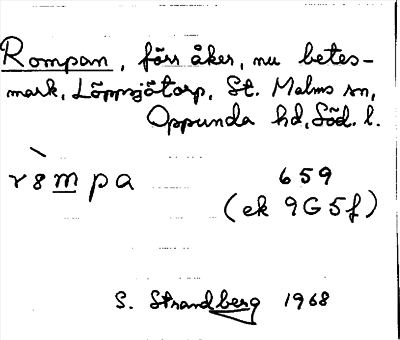 Rompan, förr åker, nu betes-
mark, Löppsjötorp, St. Malms sn,
Oppunda hd, Söd. l.
r8̀mpa 659
(ek 9G5f)
S. Strandberg 1968